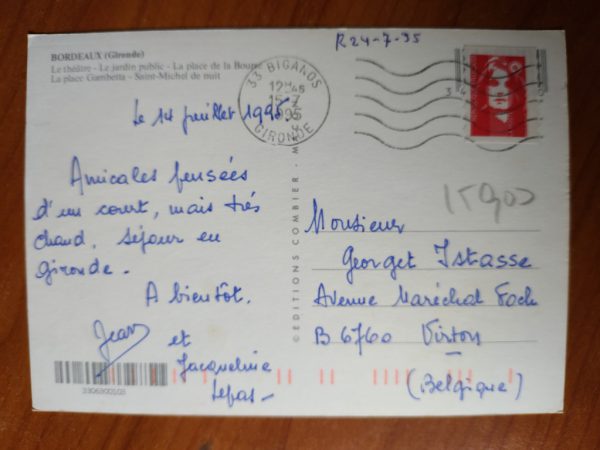 R 24-7-95
BORDEAUX (Gironde)
Le théâtre - Le jardin public - La place de la Bourse
La place Gambetta - Saint-Michel de nuit
33 BIGANOS
12H45
15-7
1995
GIRONDE
Le 14 juillet 1995.
Amicales pensées
d'un court, mais très
chaud, séjour en
gironde.
A bientôt.
Jean
et
Jacqueline
Lepas
3306300103
© EDITIONS COMBIER - M
15900
Monsieur
Georget Istasse
Avenue Maréchal Foch
B 6760 Virton
(Belgique)